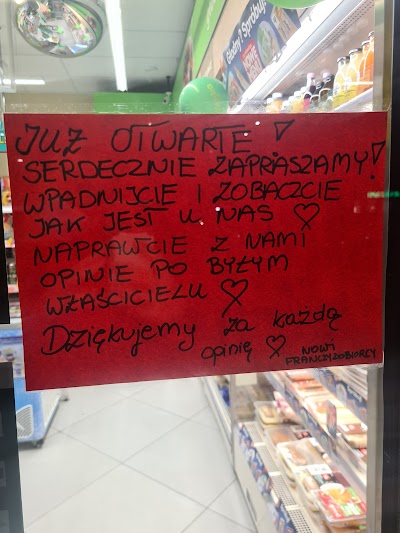 Głodny? Spróbuj
JUŻ OTWARTE!
SERDECZNIE ZAPRASZAMY!
WPADNIJCIE I ZOBACZCIE
JAK JEST U NAS ♡
NAPRAWCIE Z NAMI
OPINIE PO BYŁYM
WŁAŚCICIELU ♡
Dziękujemy za każdą
opinię ♡ NOWI
FRANCZYZOBIORCY